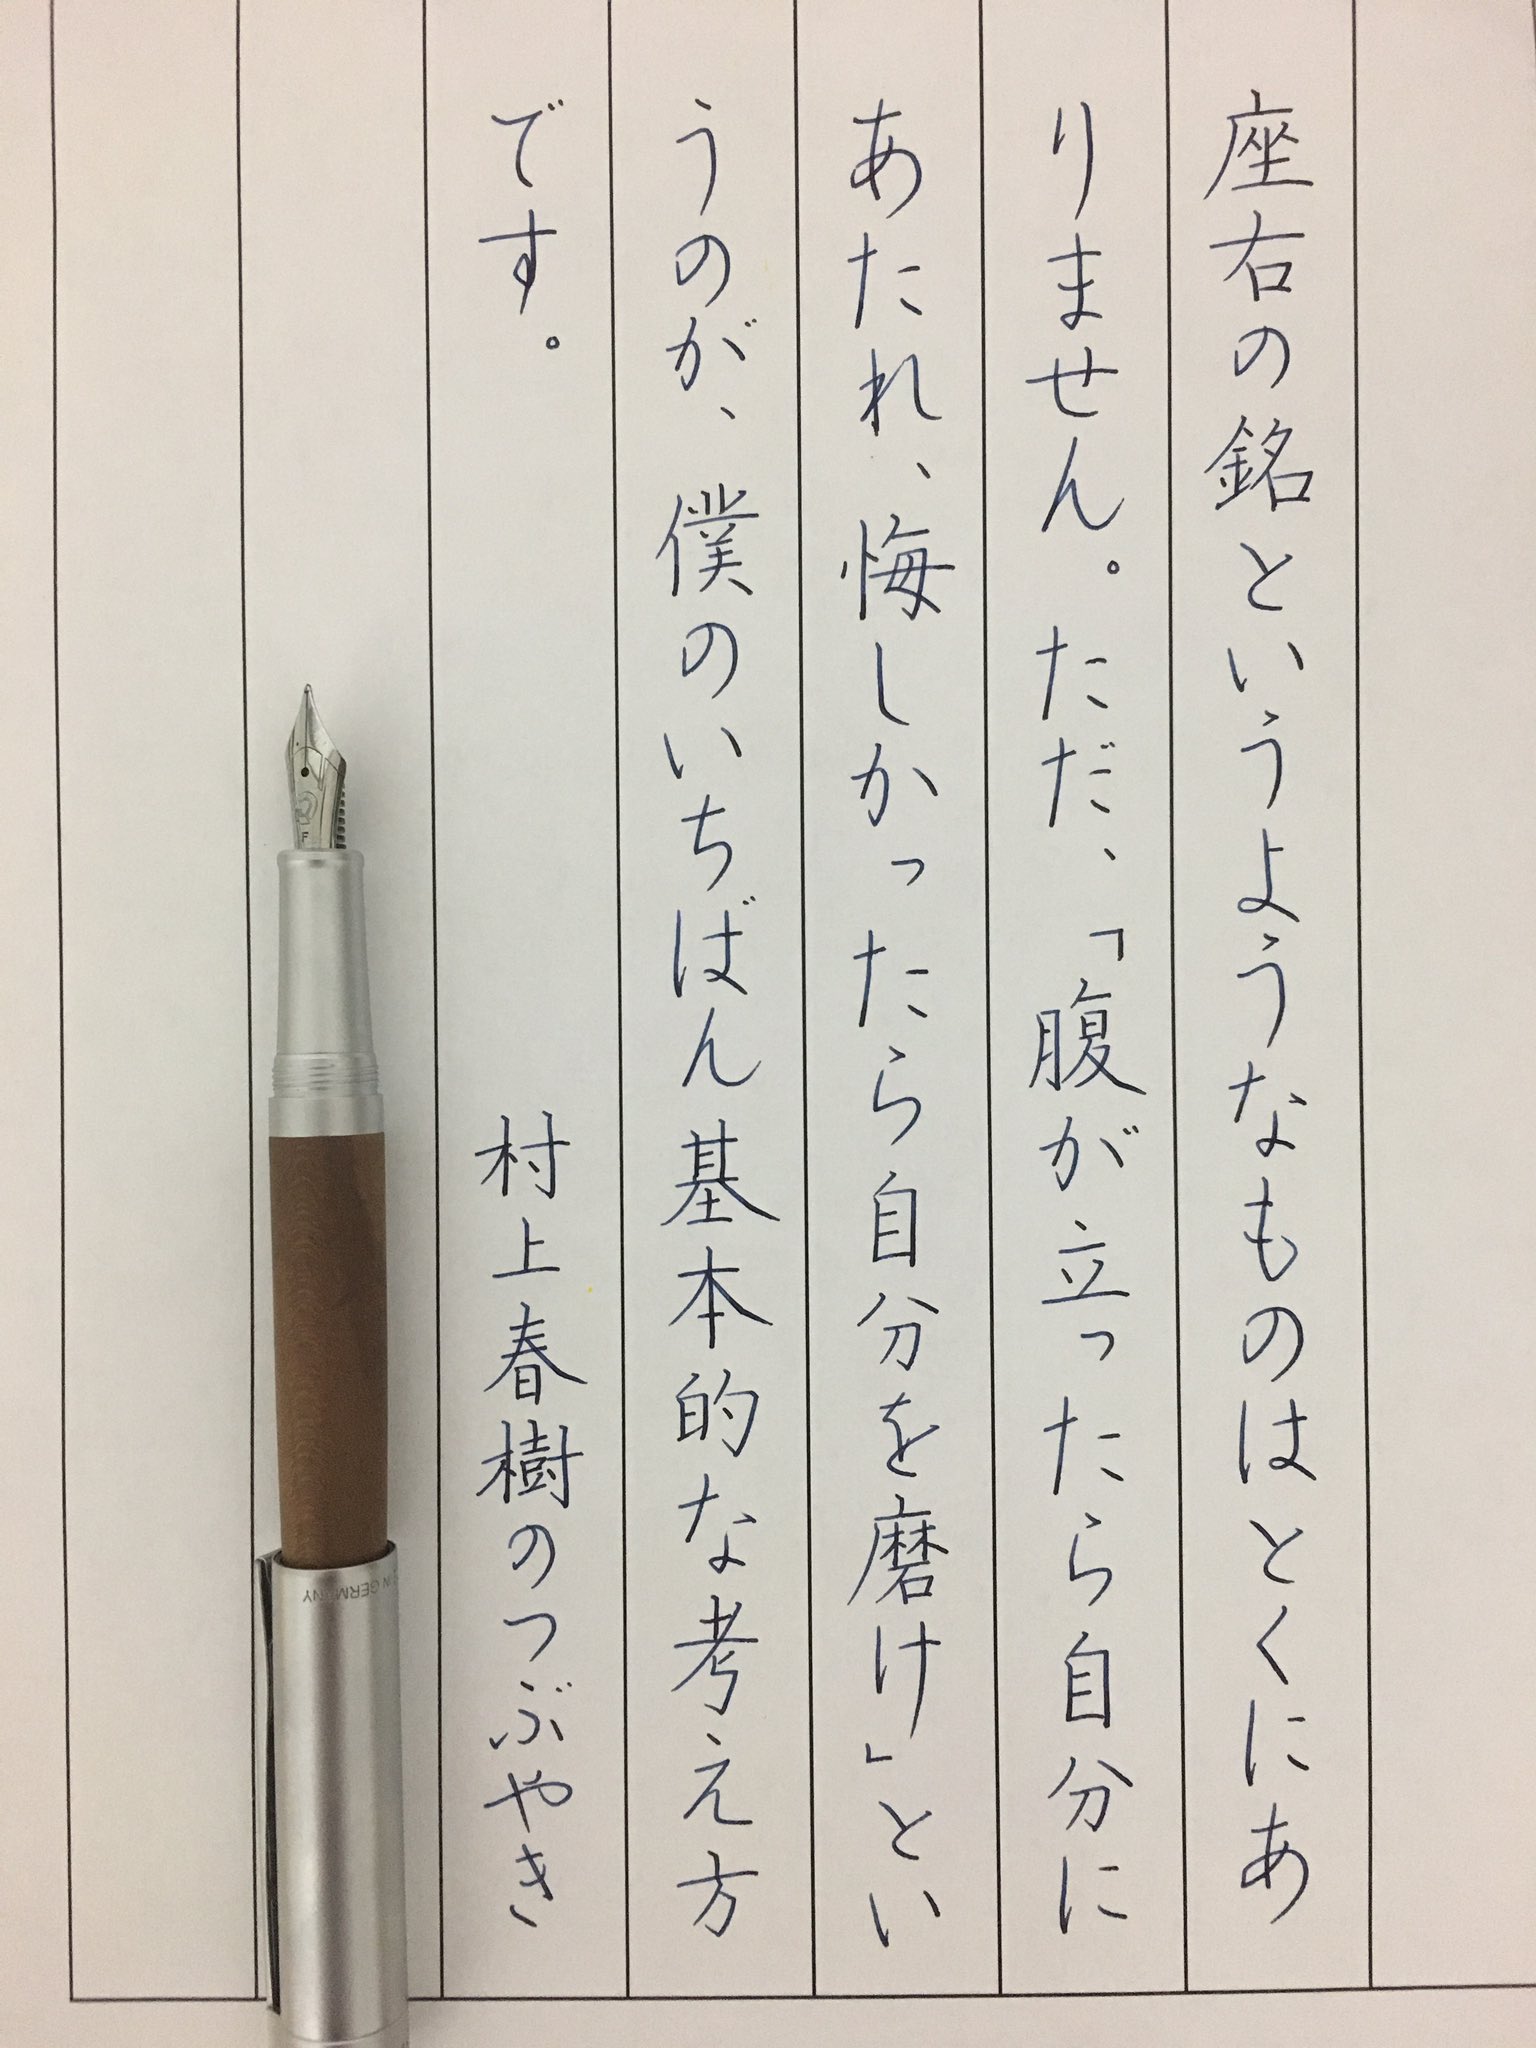 座右の銘というようなものはとくにあ
りません。ただ、「腹が立ったら自分に
あたれ、悔しかったら自分を磨け」とい
うのが、僕のいちばん基本的な考え方
です。 村上春樹のつぶやき
F
IN GERMANY